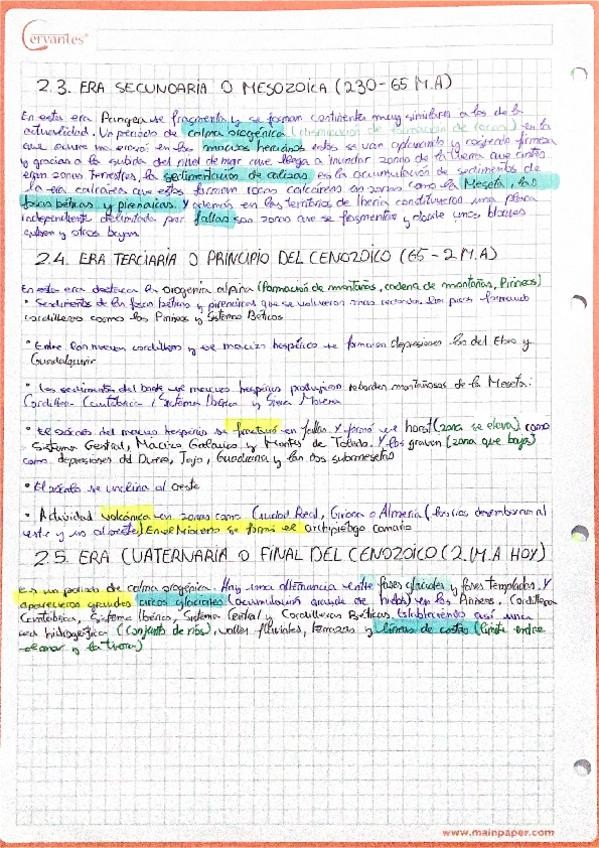 Cervantes
2.3. ERA SECUNDARIA O MESOZOICA (230-65 M.A)
En esta era Pangea se fragmenta y se forman continentes muy similares a los de la
actualidad. Un periodo de calma orogénica (disminución de formación de rocas) en la
que ocurre la erosión en los macizos hercinianos estos se van aplanando y cogiendo firmeza
y gracias a la subida del nivel de mar que llega a inundar zonas de la tierra que antes
eran zonas terrestres, la sedimentación de calizas es la acumulación de sedimentos de
la era calcáreas que estos forman rocas calcáreas en zonas como la Meseta, las
fosas béticas y pirenaicas. Y además en los territorios de Iberia constituyeron una placa
independiente delimitada por fallas son zonas que se fragmentan y donde unos bloques
suben y otros bajan.
2.4. ERA TERCIARIA O PRINCIPIO DEL CENOZOICO (65-2M.A)
En esta era destaca la orogenia alpina (formación de montañas, cadena de montañas, Pirineos)
• Sedimentos de las fosas béticas y pirenaicas que se volvieron zonas formando
cordilleras como los Pirineos y Sistema Béticos
• Entre las nuevas cordilleras y el macizo hespérico se formaron depresiones la del Ebro y
Guadalquivir
• Los sedimentos del borde del macizo hespérico produjeron rebordes montañosos de la Meseta.
Cordillera Cantábrica, Sistema Ibérico y Sierra Morena
• El zócalo del macizo hespérico se fracturó en fallas. Y formó el horst (zona se eleva) como
Sistema Central, Macizo Galaico y Montes de Toledo. Y los graven (zona que baja)
como depresiones del Duero, Tajo, Guadiana y las dos submesetas
• El zócalo se inclina al oeste
• Actividad volcánica en zonas como Ciudad Real, Girona o Almería (los ríos desembocan al
este y un al oeste) En el Mioceno se formó el archipiélago canario
2.5. ERA CUATERNARIA O FINAL DEL CENOZOICO (2.M.A HOY)
Es un periodo de calma orogénica. Hay una alternancia entre fases glaciales y fases templadas. Y
aparecieron grandes circos glaciales (acumulación grande de hielos) en los Pirineos, Cordillera
Cantábrica, Sistema Ibérico, Sistema Central y Cordilleras Béticas. Estableciendo así una
red hidrográfica (conjunto de ríos), valles fluviales, terrazas y líneas de costas (límite entre
el mar y la tierra)
www.mainpaper.com